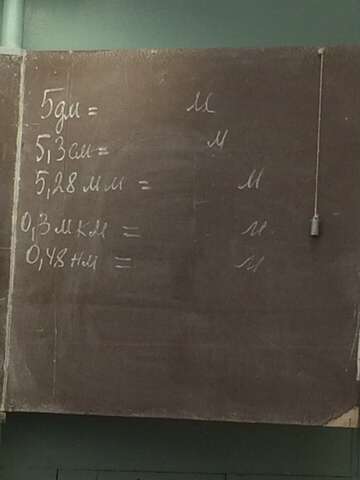 5дм = м
5,3см = м
5,28мм = м
0,3мкм = м
0,48нм = м